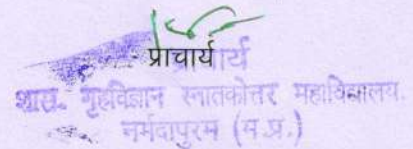 प्राचार्य
प्राचार्य
शास. गृहविज्ञान स्नातकोत्तर महाविद्यालय.
नर्मदापुरम (म.प्र.)